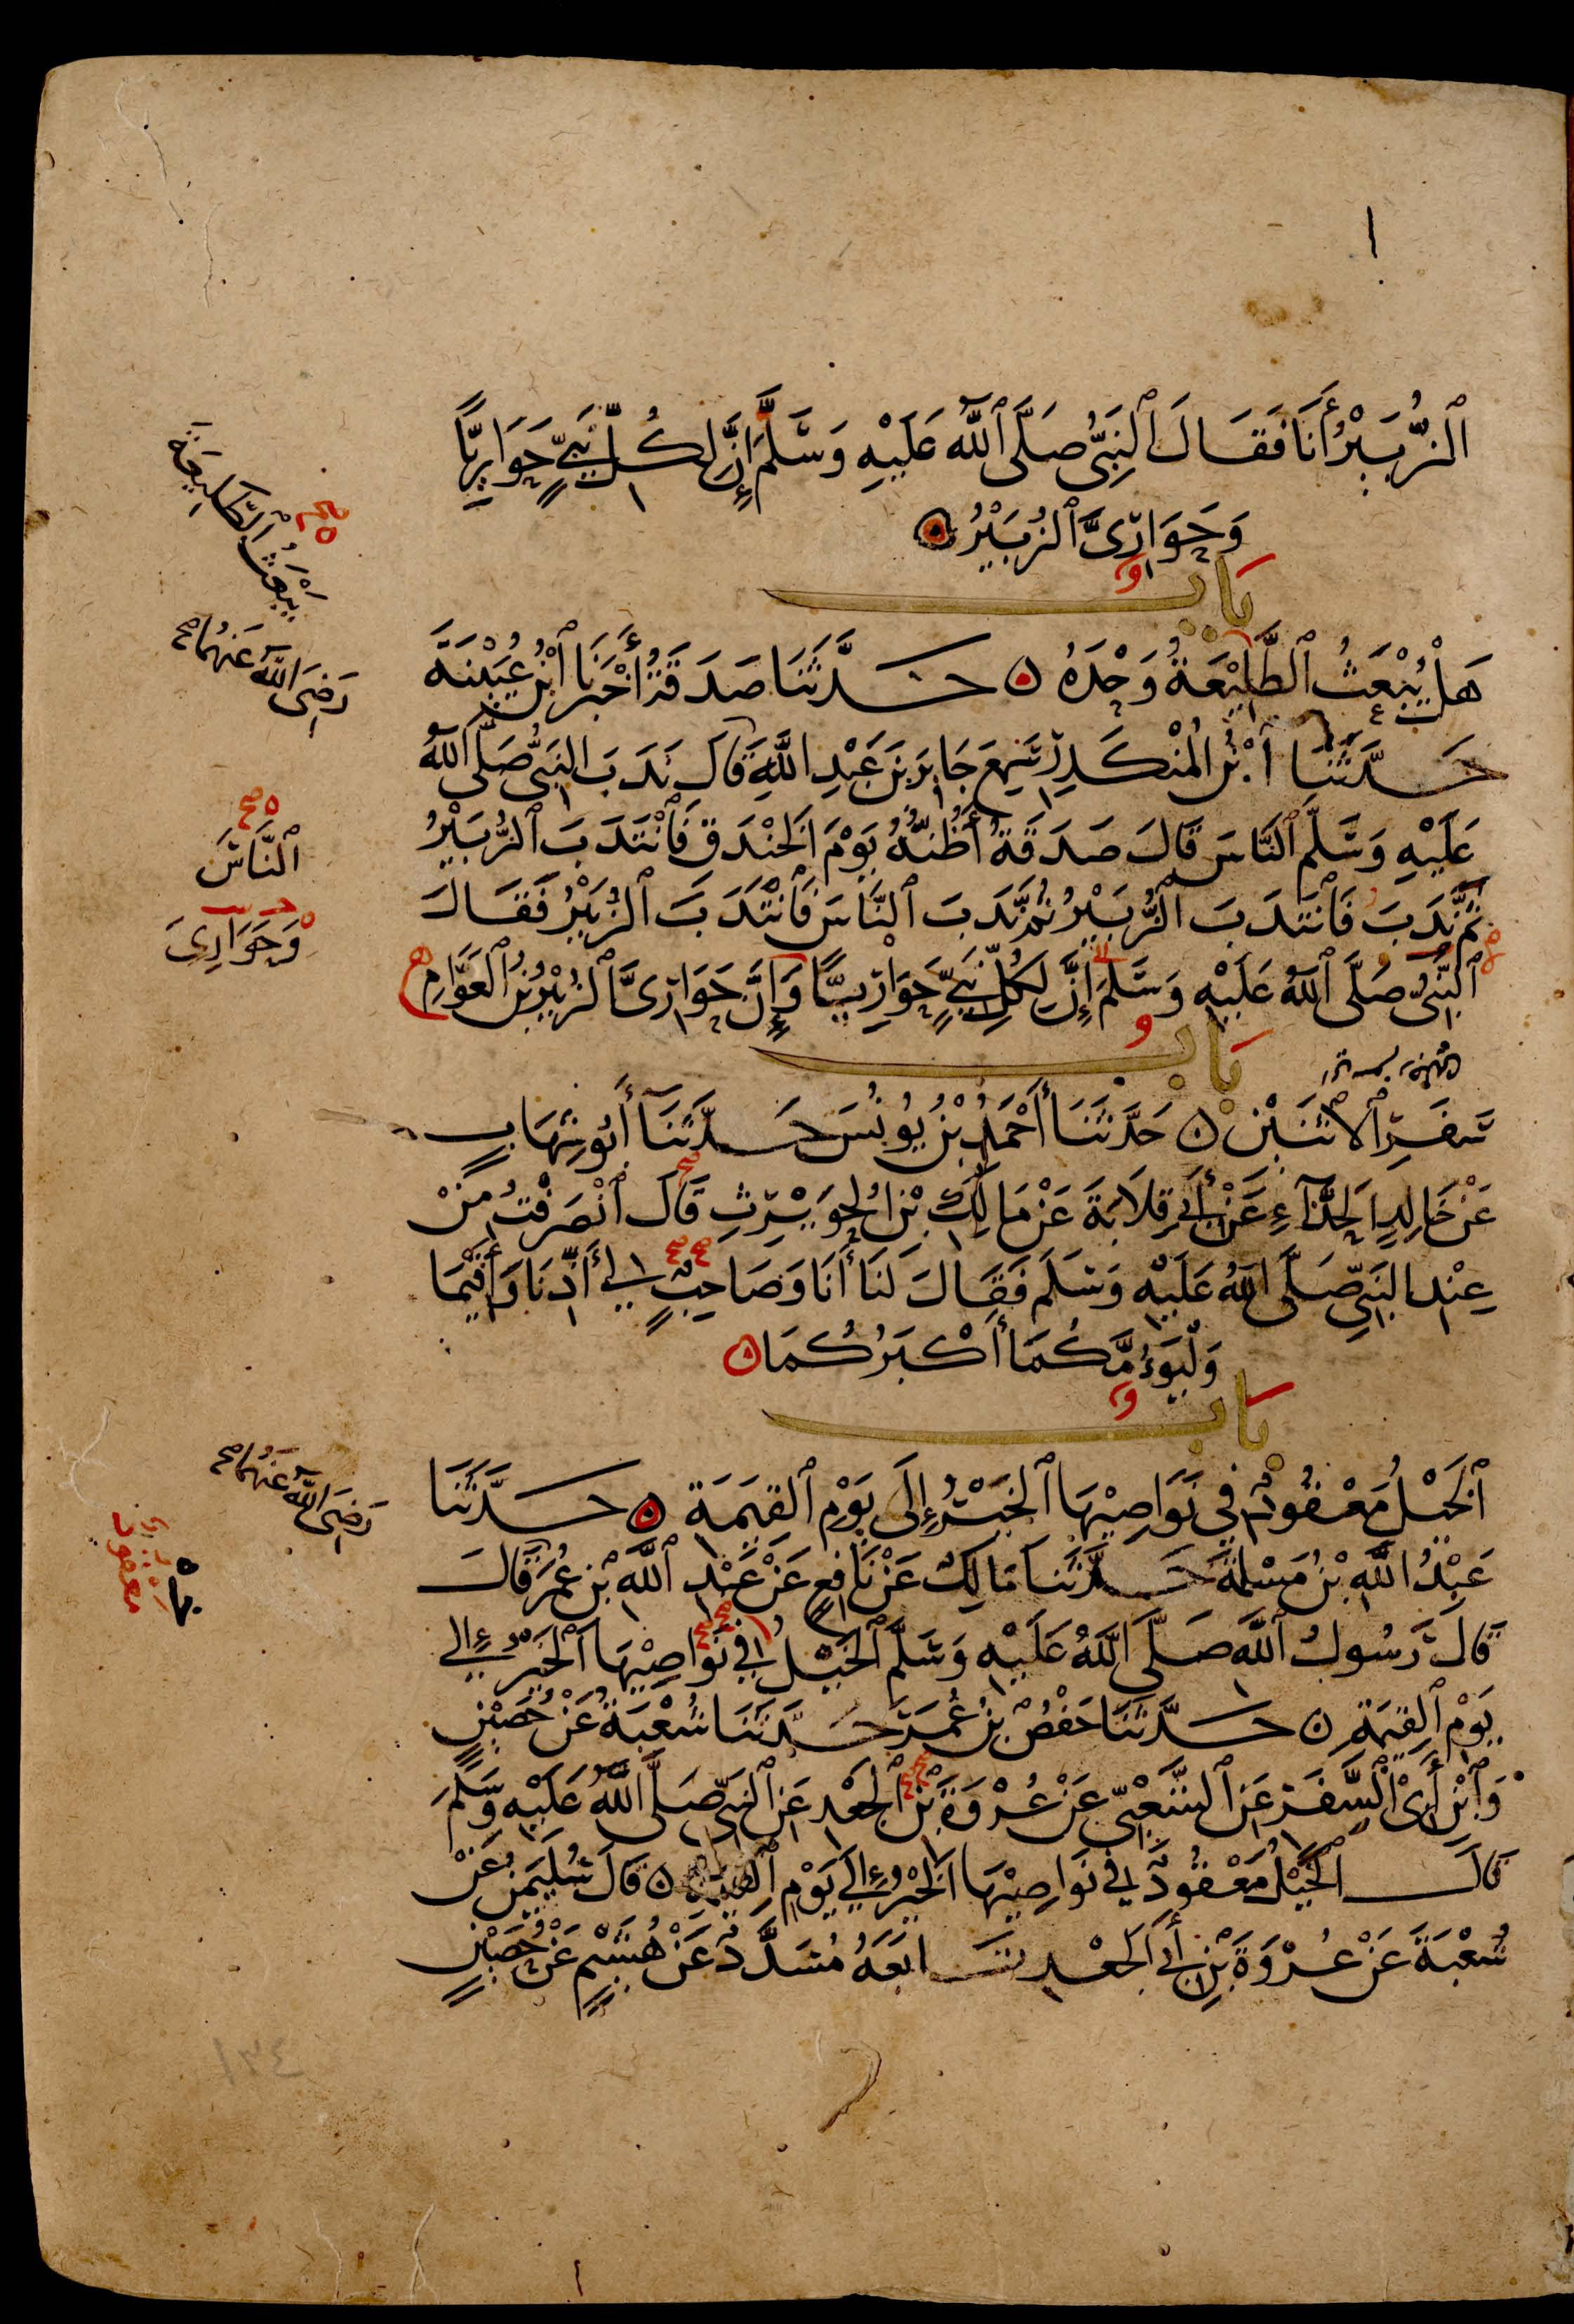 ٱلزُّبَيْرُ أَنَا فَقَالَ ٱلنَّبِىُّ صَلَّى ٱللَّهُ عَلَيْهِ وَسَلَّمَ إِنَّ لِكُلِّ نَبِيٍّ حَوَارِيًّا
وَحَوَارِىَّ ٱلزُّبَيْرُ ۞
بَاب
هَلْ يُبْعَثُ ٱلطَّلِيْعَةُ وَحْدَهُ ۞ حَدَّثَنَا صَدَقَةُ أَخْبَرَنَا ٱبْنُ عُيَيْنَةَ
حَدَّثَنَا ٱبْنُ الْمُنْكَدِرِ سَمِعَ جَابِرَ بْنَ عَبْدِ اللَّهِ قَالَ نَدَبَ النَّبِىُّ صَلَّى ٱللَّهُ
عَلَيْهِ وَسَلَّمَ ٱلنَّاسَ قَالَ صَدَقَةُ أَظُنُّهُ يَوْمَ الْخَنْدَقِ فَٱنْتَدَبَ ٱلزُّبَيْرُ
ثُمَّ نَدَبَ فَٱنْتَدَبَ ٱلزُّبَيْرُ ثُمَّ نَدَبَ ٱلنَّاسَ فَٱنْتَدَبَ ٱلزُّبَيْرُ فَقَالَ
ٱلنَّبِىُّ صَلَّى ٱللَّهُ عَلَيْهِ وَسَلَّمَ إِنَّ لِكُلِّ نَبِيٍّ حَوَارِيًّا وَإِنَّ حَوَارِىَّ ٱلزُّبَيْرُ بْنُ ٱلْعَوَّامِ
بَاب
سَفَرِ ٱلِاثْنَيْنِ ۞ حَدَّثَنَا أَحْمَدُ بْنُ يُونُسَ حَدَّثَنَا أَبُو شِهَابٍ
عَنْ خَالِدٍ الْحَذَّآءِ عَنْ أَبِي قِلَابَةَ عَنْ مَالِكِ بْنِ الْحُوَيْرِثِ قَالَ ٱنْصَرَفْتُ مِنْ
عِنْدِ النَّبِيِّ صَلَّى ٱللَّهُ عَلَيْهِ وَسَلَّمَ فَقَالَ لَنَا أَنَا وَصَاحِبٍ لِي أَذِّنَا وَأَقِيْمَا
وَلْيَؤُمَّكُمَا أَكْبَرُكُمَا ۞
بَاب
ٱلْخَيْلُ مَعْقُودٌ فِي نَوَاصِيْهَا ٱلْخَيْرُ إِلَى يَوْمِ ٱلْقِيَمَةِ ۞ حَدَّثَنَا
عَبْدُ اللَّهِ بْنُ مَسْلَمَةَ حَدَّثَنَا مَالِكٌ عَنْ نَافِعٍ عَنْ عَبْدِ ٱللَّهِ بْنِ عُمَرَ قَالَ
قَالَ رَسُولُ ٱللَّهِ صَلَّى ٱللَّهُ عَلَيْهِ وَسَلَّمَ ٱلْخَيْلُ فِي نَوَاصِيْهَا ٱلْخَيْرُ إِلَى
يَوْمِ ٱلْقِيَمَةِ ۞ حَدَّثَنَا حَفْصُ بْنُ عُمَرَ حَدَّثَنَا شُعْبَةُ عَنْ حُصَيْنٍ
وَٱبْنِ أَبِى ٱلسَّفَرِ عَنِ ٱلشَّعْبِيِّ عَنْ عُرْوَةَ بْنِ ٱلْجَعْدِ عَنِ ٱلنَّبِيِّ صَلَّى ٱللَّهُ عَلَيْهِ وَسَلَّمَ
قَالَ ٱلْخَيْلُ مَعْقُودٌ فِي نَوَاصِيْهَا ٱلْخَيْرُ إِلَى يَوْمِ ٱلْقِيَمَةِ ۞ قَالَ سُلَيْمَنُ عَنْ
شُعْبَةَ عَنْ عُرْوَةَ بْنِ أَبِي الْجَعْدِ تَابَعَهُ مُسَدَّدٌ عَنْ هُشَيْمٍ عَنْ حُصَيْنٍ
يَبْعَثُ ٱلطَّلِيعَةَ
رَضِىَ اللَّهُ عَنْهُمَا
ٱلنَّاسَ
وَحَوَارِىَ
رَضِىَ اللَّهُ عَنْهُمَا
معقود